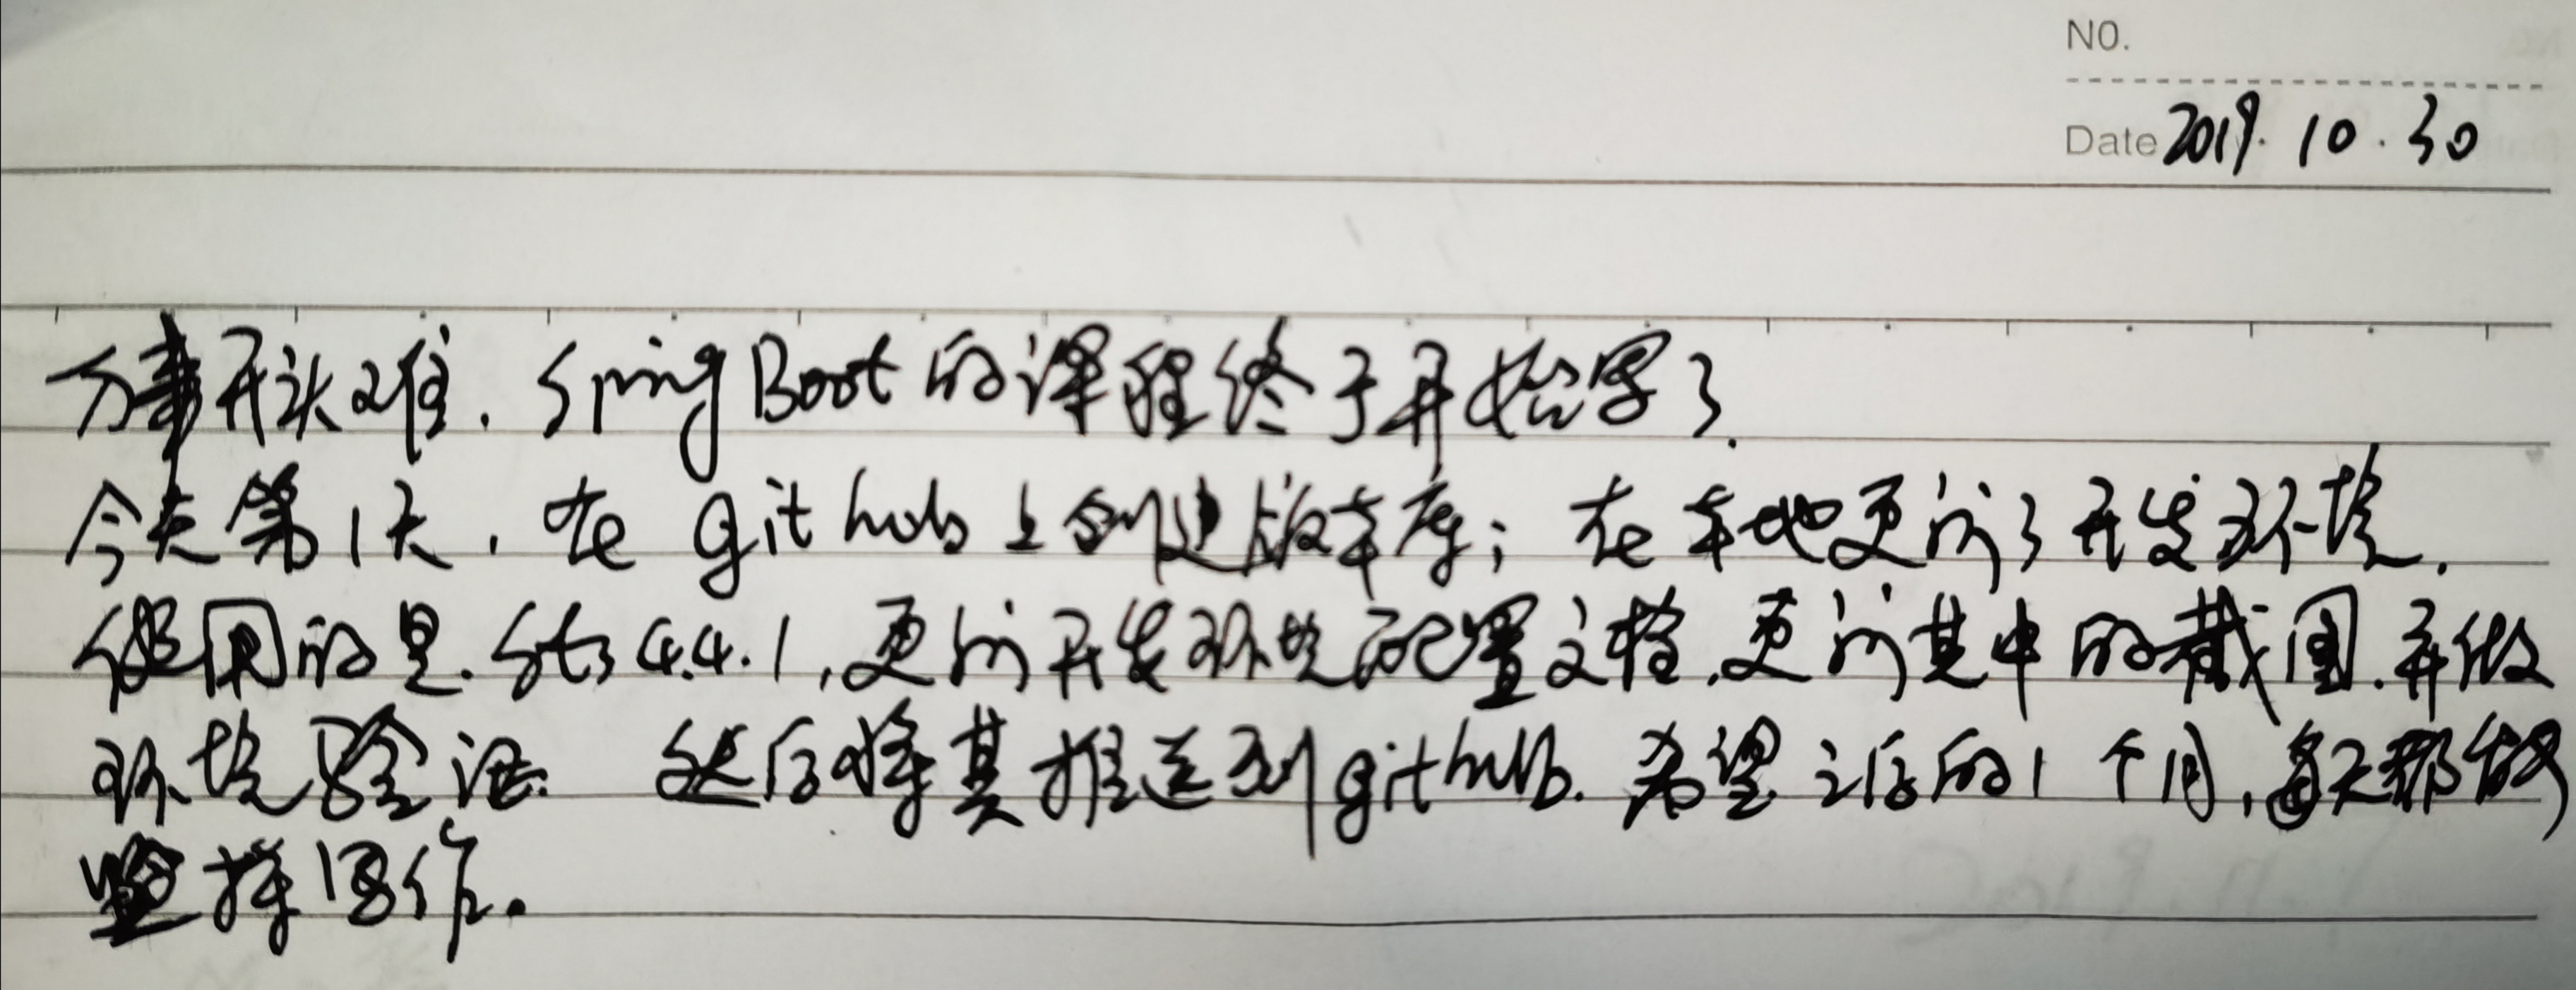 NO.
Date 2019.10.30
万事开头难. Spring Boot的课程终于开始写了.
今天第1天, 在github上创建版本库; 在本地更新了开发环境.
使用的是.sts4.4.1,更新开发环境配置文档.更新其中的截图.并做
环境验证. 然后将其推送到github.希望之后的1个月,每天都能
坚持写作.